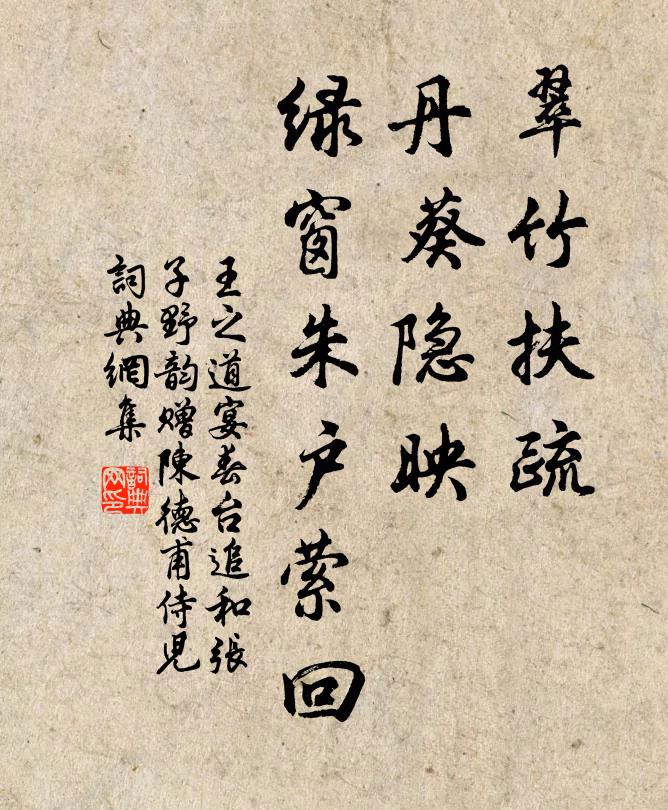 翠竹扶疏
丹葵隐映
绿窗朱户萦回
王之道宴春台追和張
子野韵赠陳德甫侍児
詞典網集
詞典
网印